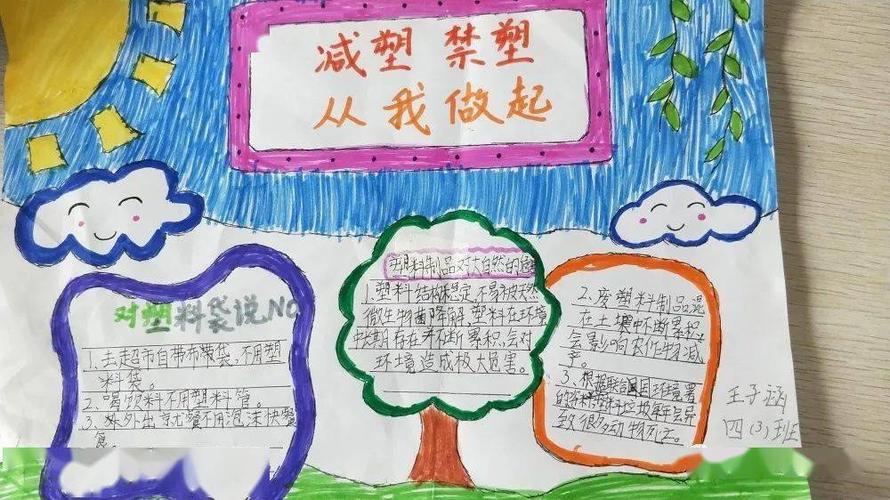 减塑 禁塑
从我做起
对塑料袋说NO
1、去超市自带布带袋,不用塑
料袋。
2、喝饮料不用塑料管。
3、外出就餐不用泡沫快餐
塑料制品对大自然的危
1、塑料结构稳定,不易被天然
微生物菌降解,塑料在环境
中长期存在并不断累积,会对
环境造成极大危害。
2、废塑料制品混
在土壤中不断累积,
会影响农作物减
产。
3、根据联合国环境署
致很多动物死亡。
王子涵
四(3)班